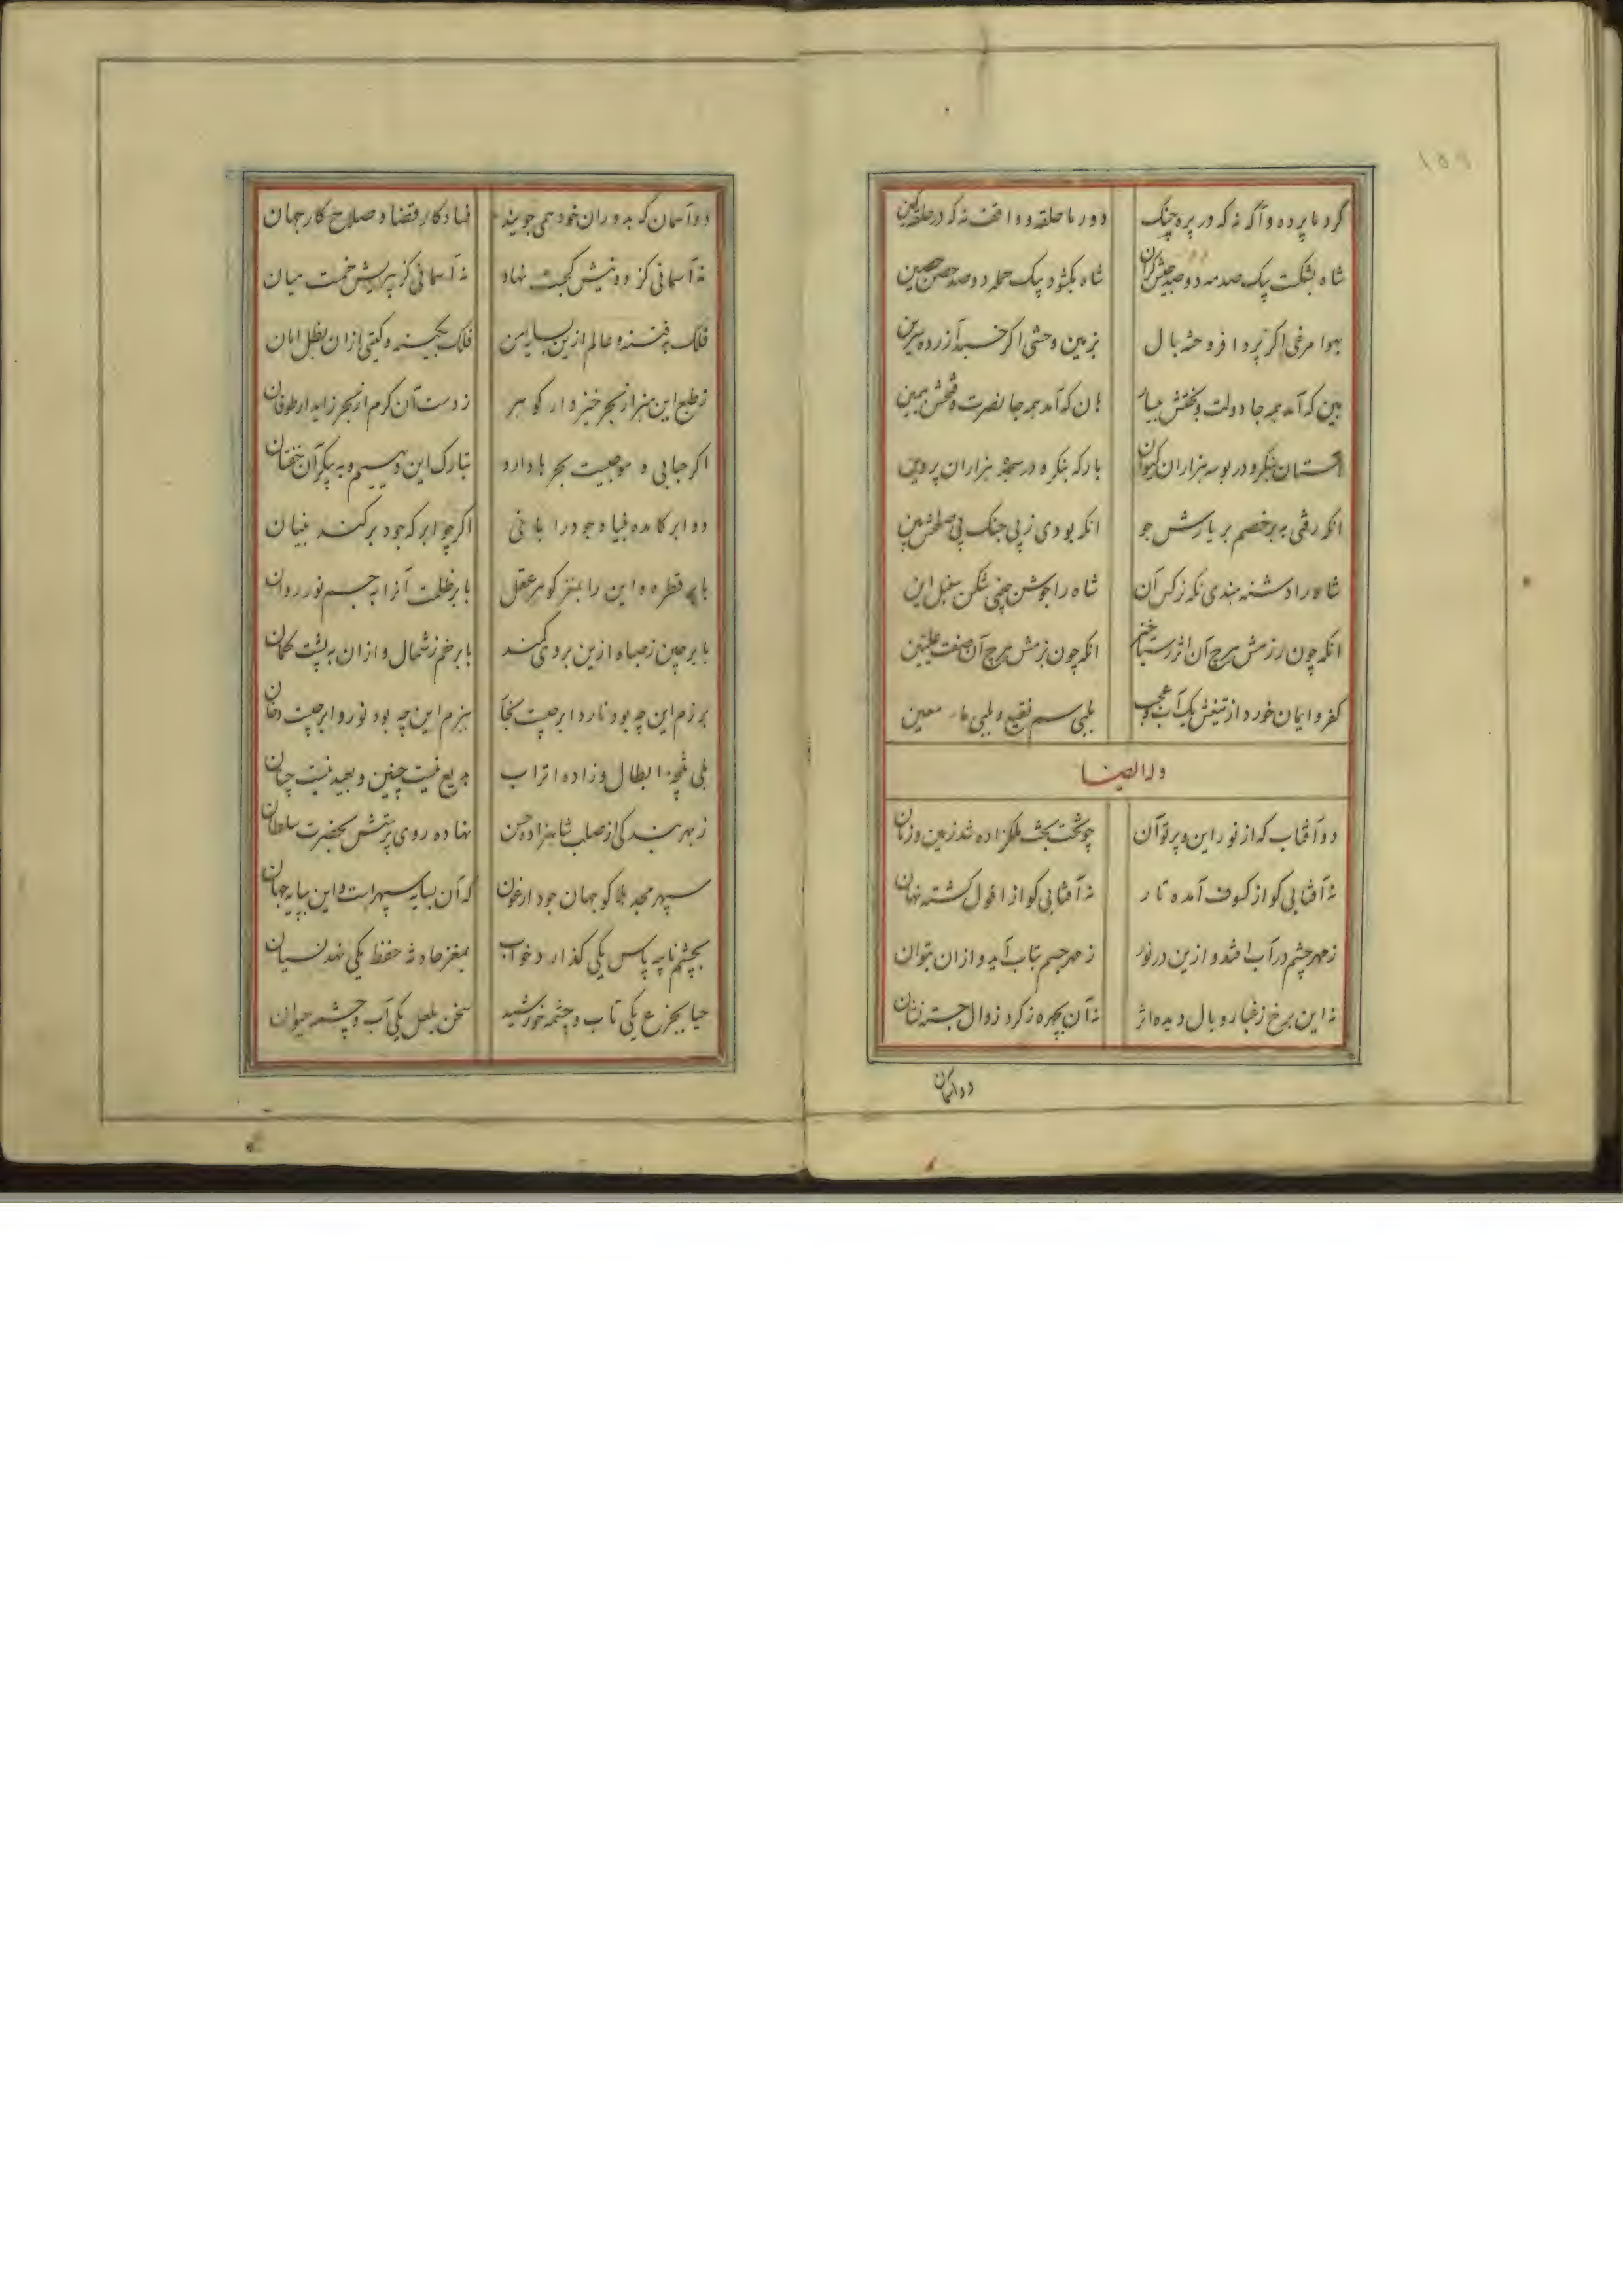 گرد ما پرده و آگه نه که در پره چنگ دور ما حلقه و واقف نه که در حلقه کین
شاه بشکت بیک صدمه دو صد جیش گران شاه بکشود بیک حمله دو صد حصن حصین
بهوا مرغی اگر پرد افروخته بال بزمین وحشی اگر خسبد آزرده سرین
بین که آمد همه جا دولت و بختش بیسار هان که آمد همه جا نصرت و فتحش بیمین
آستان بنگر و در بوسه هزاران کیوان بارگه بنگر و در سجده هزاران پروین
آنکه رفتی به بر خصم بر یارش جو آنکه بودی ز پی جنگ پی صلحش بین
شاه را دشنه هندی نگه نرگس آن شاه را جوشن چینی شکن سنبل این
آنکه چون رزمش هرچ آن اثر سجین آنکه چون بزمش هرچ آن صفت علیین
کفر و ایمان خورد از تیغش یک آب و عجب بلبی سم نقیع و بلبی ماء معین
وله ایضا
دو آفتاب که از نور این و پرتو آن چو تخت بخت ملکزاده شد زمین و زمان
نه آفتابی کو از کسوف آمده تار نه آفتابی کو از افول گشته نهان
ز مهر چشم در آب افتد و ازین در نور ز مهر جسم بتاب آید و ازان بتوان
نه این برخ ز غبار وبال دیده اثر نه آن بچهره ز گرد زوال جسته نشان
دو آسمان
دو آسمان که بدوران خود همی جویند فساد کار قضا و صلاح کار جهان
نه آسمانی کز دونیش کجست نهاد نه آسمانی کز پیریش خمست میان
فلک بفتنه و عالم ازین بسایه امن فلک بکینه و گیتی ازان بظل امان
ز طبع این هنر ار بحر خیزد ار گوهر ز دست آن کرم ار بحر زاید ار طوفان
اگر حبابی و موجیست بحرها دارد تبارک این دیهیم و به پیکر آن خفتان
دو ابر کامده گیاه جود را بانی اگر چو ابر که جود بر کند بنیان
بابر قطره و این را بمغز گوهر عقل بابر ظلمت آنرا بجسم نور روان
بابر چین ز صبا و ازین بروی کمند بابر خم ز شمال و ازان به پشت کمان
برزم این چه بود نار و ابر چیست بخار ببزم این چه بود نور و ابر چیست دخان
بلی نتیجه ابطال و زاده اتراب بدیع نیست چنین و بعید نیست چنان
ز بهر بندگی از صلب شاهزاده حسن نهاده روی پرستش بحضرت سلطان
سپهر مجد هلاکو جهان جود ارغون که آن بسایه سپهراست و این بپایه جهان
بچشم نایبه پاس یکی گذارد خواب بمغز حادثه حفظ یکی نهد نسیان
حیا بجزع یکی تاب و چشمه خورشید سخن بلعل یکی آب و چشمه حیوان